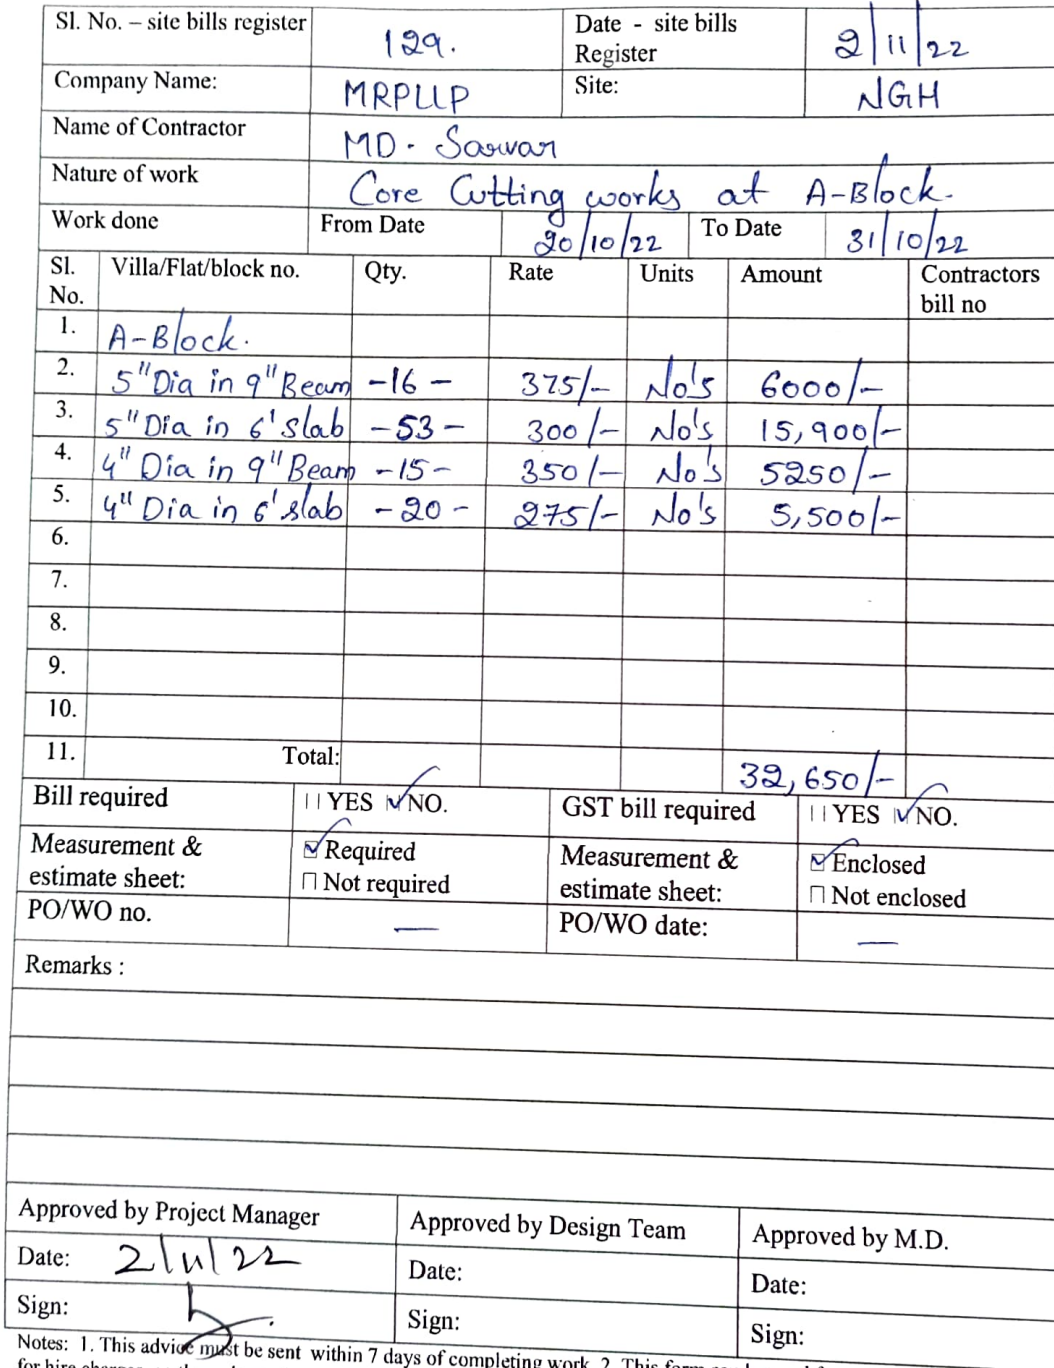 Sl. No. – site bills register 129. Date - site bills Register 2/11/22
Company Name: MRPLLP Site: NGH
Name of Contractor MD. Sarwar
Nature of work Core Cutting works at A-Block.
Work done From Date 20/10/22 To Date 31/10/22
Sl. No. Villa/Flat/block no. Qty. Rate Units Amount Contractors bill no
1. A-Block.
2. 5" Dia in 9" Beam -16- 375/- No's 6000/-
3. 5" Dia in 6' slab -53- 300/- No's 15,900/-
4. 4" Dia in 9" Beam -15- 350/- No's 5250/-
5. 4" Dia in 6' slab -20- 275/- No's 5,500/-
6.
7.
8.
9.
10.
11. Total: 32,650/-
Bill required YES NO. GST bill required YES NO.
Measurement & estimate sheet: Required Not required Measurement & estimate sheet: Enclosed Not enclosed
PO/WO no. — PO/WO date: —
Remarks :
Approved by Project Manager Approved by Design Team Approved by M.D.
Date: 2/11/22 Date: Date:
Sign: Sign: Sign:
Notes: 1. This advice must be sent within 7 days of completing work. 2. This form